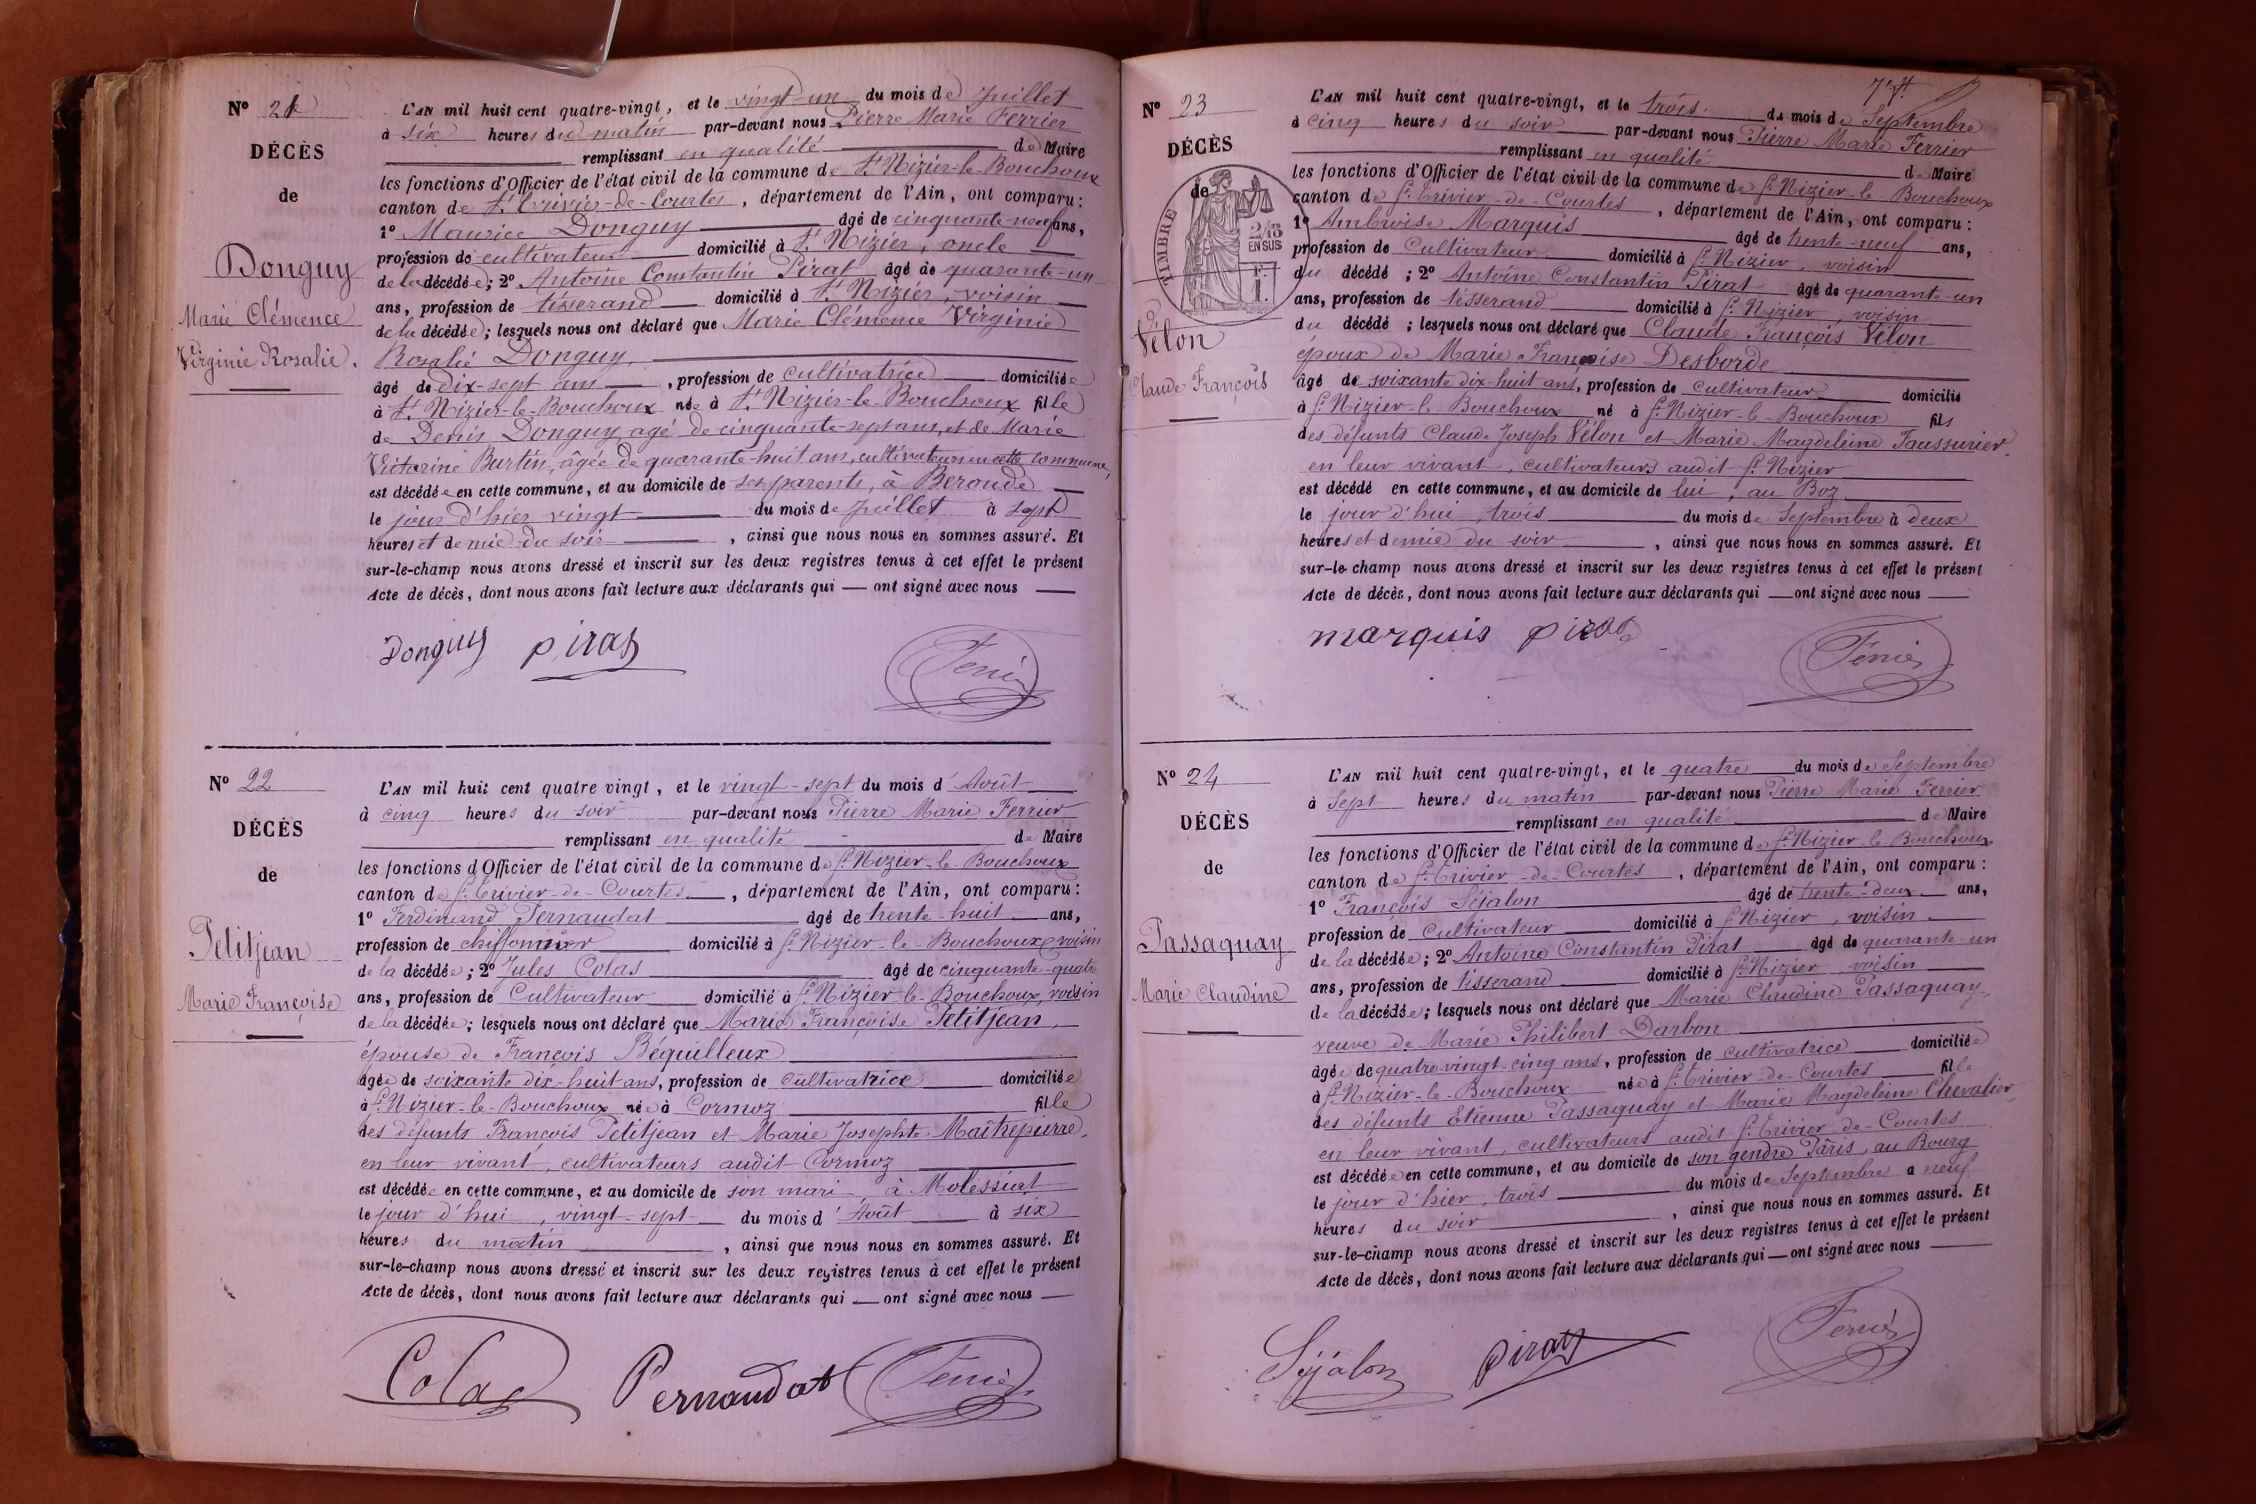 Nº 21
DÉCÈS
de
Donguy
Marie Clémence
Virginie Rosalie.
L'AN mil huit cent quatre-vingt, et le vingt-un du mois de Juillet
à six heures du matin par-devant nous Pierre Marie Ferrier
remplissant en qualité de Maire
les fonctions d'Officier de l'état civil de la commune de St Nizier-le-Bouchoux
canton de St Trivier-de-Courtes, département de l'Ain, ont comparu:
1º Maurice Donguy âgé de cinquante-neuf ans,
profession de cultivateur domicilié à St Nizier, oncle
de la décédée; 2º Antoine Constantin Pirat âgé de quarante-un
ans, profession de tisserand domicilié à St Nizier, voisin
de la décédée; lesquels nous ont déclaré que Marie Clémence Virginie
Rosalie Donguy
âgé de dix-sept ans, profession de cultivatrice domiciliée
à St Nizier-le-Bouchoux née à St Nizier-le-Bouchoux fille
de Denis Donguy agé de cinquante-sept ans, et de Marie
Victorine Burtin, âgée de quarante-huit ans, cultivateurs en cette commune,
est décédée en cette commune, et au domicile de ses parents, à Beroude
le jour d'hier vingt du mois de Juillet à sept
heures et demie du soir, ainsi que nous nous en sommes assuré. Et
sur-le-champ nous avons dressé et inscrit sur les deux registres tenus à cet effet le présent
Acte de décès, dont nous avons fait lecture aux déclarants qui — ont signé avec nous —
Donguy Pirat Ferrier
Nº 22
DÉCÈS
de
Petitjean
Marie Françoise
L'AN mil huit cent quatre vingt, et le vingt-sept du mois d'Août
à cinq heures du soir par-devant nous Pierre Marie Ferrier
remplissant en qualité de Maire
les fonctions d'Officier de l'état civil de la commune de St Nizier-le-Bouchoux
canton de St Trivier-de-Courtes, département de l'Ain, ont comparu:
1º Ferdinand Pernaudat âgé de trente-huit ans,
profession de chiffonnier domicilié à St Nizier-le-Bouchoux, voisin
de la décédée; 2º Jules Colas âgé de cinquante-quatre
ans, profession de Cultivateur domicilié à St Nizier-le-Bouchoux, voisin
de la décédée; lesquels nous ont déclaré que Marie Françoise Petitjean,
épouse de François Béquilleux
âgée de soixante dix-huit ans, profession de cultivatrice domiciliée
à St Nizier-le-Bouchoux née à Cormoz fille
des défunts François Petitjean et Marie Josephte Maîtrepierre,
en leur vivant, cultivateurs audit Cormoz
est décédée en cette commune, et au domicile de son mari, à Molessiat
le jour d'hui, vingt-sept du mois d'Août à six
heures du matin, ainsi que nous nous en sommes assuré. Et
sur-le-champ nous avons dressé et inscrit sur les deux registres tenus à cet effet le présent
Acte de décès, dont nous avons fait lecture aux déclarants qui — ont signé avec nous —
Colas Pernaudat Ferrier
Nº 23
DÉCÈS
de
TIMBRE
2/10es
EN SUS
F.
1.
Vélon
Claude François
L'AN mil huit cent quatre-vingt, et le trois du mois de Septembre
à cinq heures du soir par-devant nous Pierre Marie Ferrier
remplissant en qualité de Maire
les fonctions d'Officier de l'état civil de la commune de St Nizier-le-Bouchoux
canton de St Trivier-de-Courtes, département de l'Ain, ont comparu:
1º Ambroise Marquis âgé de trente-neuf ans,
profession de Cultivateur domicilié à St Nizier, voisin
du décédé; 2º Antoine Constantin Pirat âgé de quarante-un
ans, profession de tisserand domicilié à St Nizier, voisin
du décédé; lesquels nous ont déclaré que Claude François Vélon
époux de Marie Françoise Desborde
âgé de soixante dix-huit ans, profession de cultivateur domicilié
à St Nizier-le-Bouchoux né à St Nizier-le-Bouchoux fils
des défunts Claude Joseph Vélon et Marie Magdeleine Faussurier,
en leur vivant, cultivateurs audit St Nizier
est décédé en cette commune, et au domicile de lui, au Boz
le jour d'hui, trois du mois de Septembre à deux
heures et demie du soir, ainsi que nous nous en sommes assuré. Et
sur-le-champ nous avons dressé et inscrit sur les deux registres tenus à cet effet le présent
Acte de décès, dont nous avons fait lecture aux déclarants qui — ont signé avec nous —
Marquis Pirat Ferrier
Nº 24
DÉCÈS
de
Passaquay
Marie Claudine
L'AN mil huit cent quatre-vingt, et le quatre du mois de Septembre
à sept heures du matin par-devant nous Pierre Marie Ferrier
remplissant en qualité de Maire
les fonctions d'Officier de l'état civil de la commune de St Nizier-le-Bouchoux
canton de St Trivier-de-Courtes, département de l'Ain, ont comparu:
1º François Séjalon âgé de trente-deux ans,
profession de Cultivateur domicilié à St Nizier, voisin
de la décédée; 2º Antoine Constantin Pirat âgé de quarante-un
ans, profession de tisserand domicilié à St Nizier, voisin
de la décédée; lesquels nous ont déclaré que Marie Claudine Passaquay,
veuve de Marie Philibert Darbon
âgée de quatre-vingt-cinq ans, profession de cultivatrice domiciliée
à St Nizier-le-Bouchoux née à St Trivier-de-Courtes fille
des défunts Etienne Passaquay et Marie Magdeleine Chevalier,
en leur vivant, cultivateurs audit St Trivier-de-Courtes
est décédée en cette commune, et au domicile de son gendre Pâris, au Bourg
le jour d'hier, trois du mois de Septembre à neuf
heures du soir, ainsi que nous nous en sommes assuré. Et
sur-le-champ nous avons dressé et inscrit sur les deux registres tenus à cet effet le présent
Acte de décès, dont nous avons fait lecture aux déclarants qui — ont signé avec nous —
Séjalon Pirat Ferrier